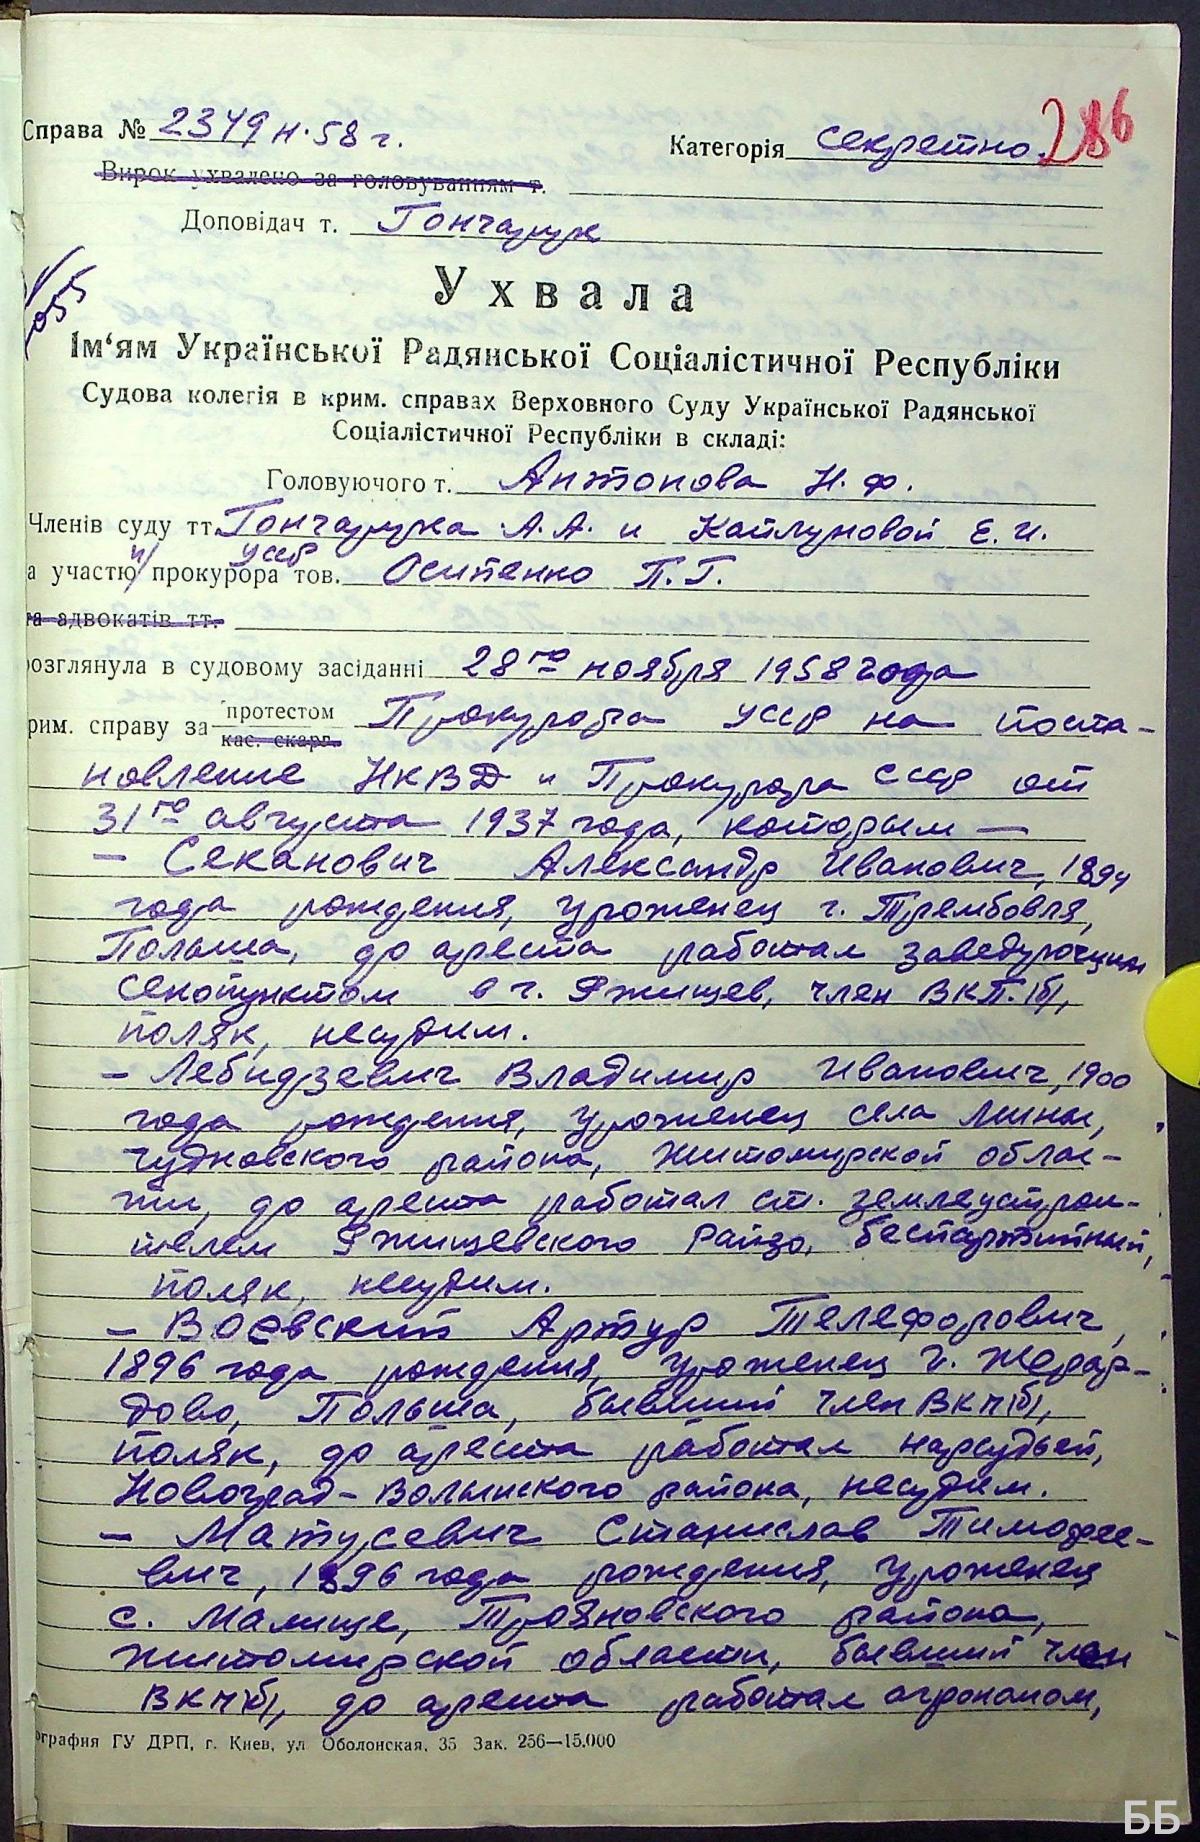 286
Справа № 2379 н. 58 г.
Категорія секретно.
Вирок ухвалено за головуванням т.
Доповідач т. Гончарук
1055
Ухвала
Ім‘ям Української Радянської Соціалістичної Республіки
Судова колегія в крим. справах Верховного Суду Української Радянської
Соціалістичної Республіки в складі:
Головуючого т. Антонова Н. Ф.
Членів суду тт. Гончарука А.А. и Кайлуновой Е. И.
п/ УССР
а участю прокурора тов. Осипенко П.Г.
та адвокатів тт.
розглянула в судовому засіданні 28го ноября 1958 года
крим. справу за протестом Прокурора УССР на поста-
кас. скарг.
новление НКВД и Прокурора СССР от
31го августа 1937 года, которым —
— Секанович Александр Иванович, 1894
года рождения, уроженец г. Трембовля,
Польша, до ареста работал заведующим
сенопунктом в г. Ржищев, член ВКП(б),
поляк, несудим.
— Лебидзевич Владимир Иванович, 1900
года рождения, уроженец села
Чудновского района, Житомирской облас-
ти, до ареста работал ст. землеустрои-
телем Ржищевского Райзо, беспартийный,
поляк, несудим.
— Воевский Артур Телефорович,
1896 года рождения, уроженец г. Жерар-
дово, Польша, бывший член ВКП(б),
поляк, до ареста работал нарсудьей,
Новоград-Волынского района, несудим.
— Матусевич Станислав Тимофее-
вич, 1896 года рождения, уроженец
с. Малище, Трояновского района,
Житомирской области, бывший член
ВКП(б), до ареста работал агрономом,
ография ГУ ДРП, г. Киев, ул Оболонская, 35 Зак. 256—15.000
ББ